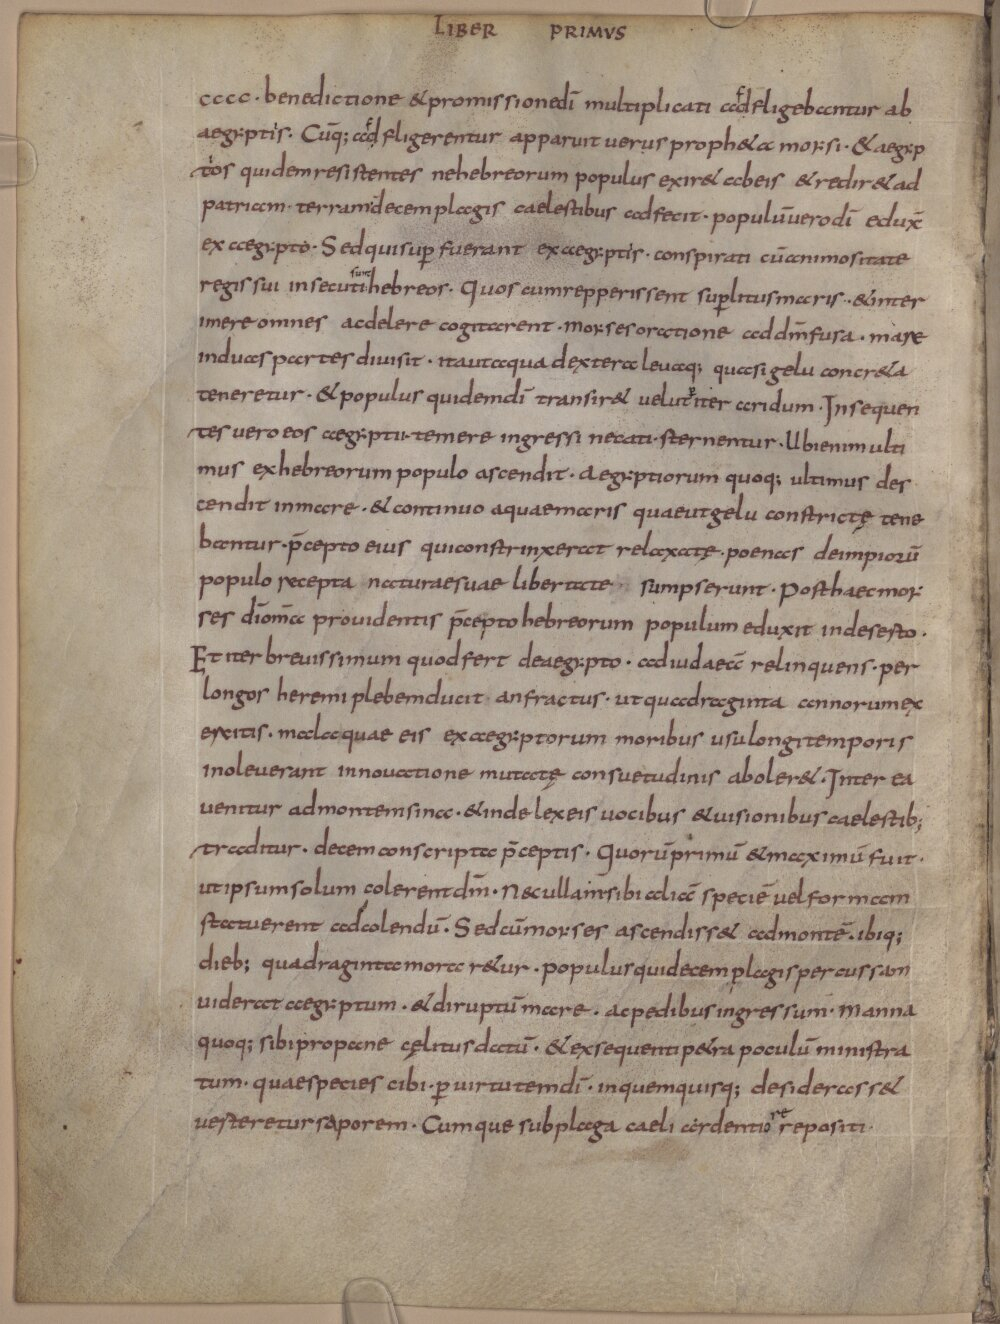 LIBER PRIMVS
cccc · benedictione & promissione dī multiplicati adfligebantur ab
aegyptis · Cūq; adfligerentur apparuit uerus proph&a moyses · & aegyp
tios quidem resistentes ne hebreorum populus exir& ab eis & redir& ad
patriam · terram decem plagis caelestibus adfecit · populū uero dī eduxt̄
ex aegypto · Sed qui sup̄fuerant ex aegyptis · conspirati cū animositate
regis sui insecuti sunt hebreos · Quos cum repperissent sup̄ litus maris · & inter
imere omnes ac delere cogitarent · moyses oratione ad dm̄ fusa · mare
in duas partes diuisit · ita ut aqua dextera leuaq; quasi gelu concr&a
teneretur · & populus quidem dī transir& uelut p̄ iter aridum · Insequen
tes uero eos aegyptii temere ingressi necati sternentur · Ubi enim ulti
mus ex hebreorum populo ascendit · aegyptiorum quoq; ultimus des
cendit in mare · & continuo aquae maris quae ut gelu constrictę tene
bantur · p̄cepto eius qui constrinxerat relaxatę · poenas de impiorū
populo recepta naturae suae libertate sumpserunt · Post haec moy
ses dī omīa prouidentis p̄cepto hebreorum populum eduxit inde sesto ·
Et iter breuissimum quod fert de aegypto · ad iudaeā relinquens · per
longos heremi plebem ducit anfractus · ut quadraginta annorum ex
ercitis · mala quae eis ex aegyptorum moribus usu longi temporis
inoleuerant innouatione mutatę consuetudinis aboler& · Inter ea
uenitur ad montem sina · & inde lex eis uocibus & uisionibus caelestib;
traditur · decem conscripta p̄ceptis · Quorū primū & maximū fuit ·
ut ipsum solum colerent dm̄ · Nec ullam sibi aliā speciē uel formam
statuerent ad colendū · Sed cū moyses ascendiss& ad montē · ibiq;
dieb; quadraginta morar&ur · populus qui decem plagis percussam
uiderat aegyptum · & diruptū mare · ac pedibus ingressum · Manna
quoq; sibi pro pane cęlitus datū · & ex sequenti p&ra poculū ministra
tum · quae species cibi · p̄ uirtutem dī · in quem quisq; desiderass&
uesteretur saporem · Cumque sub plaga caeli ardentiore repositi ·